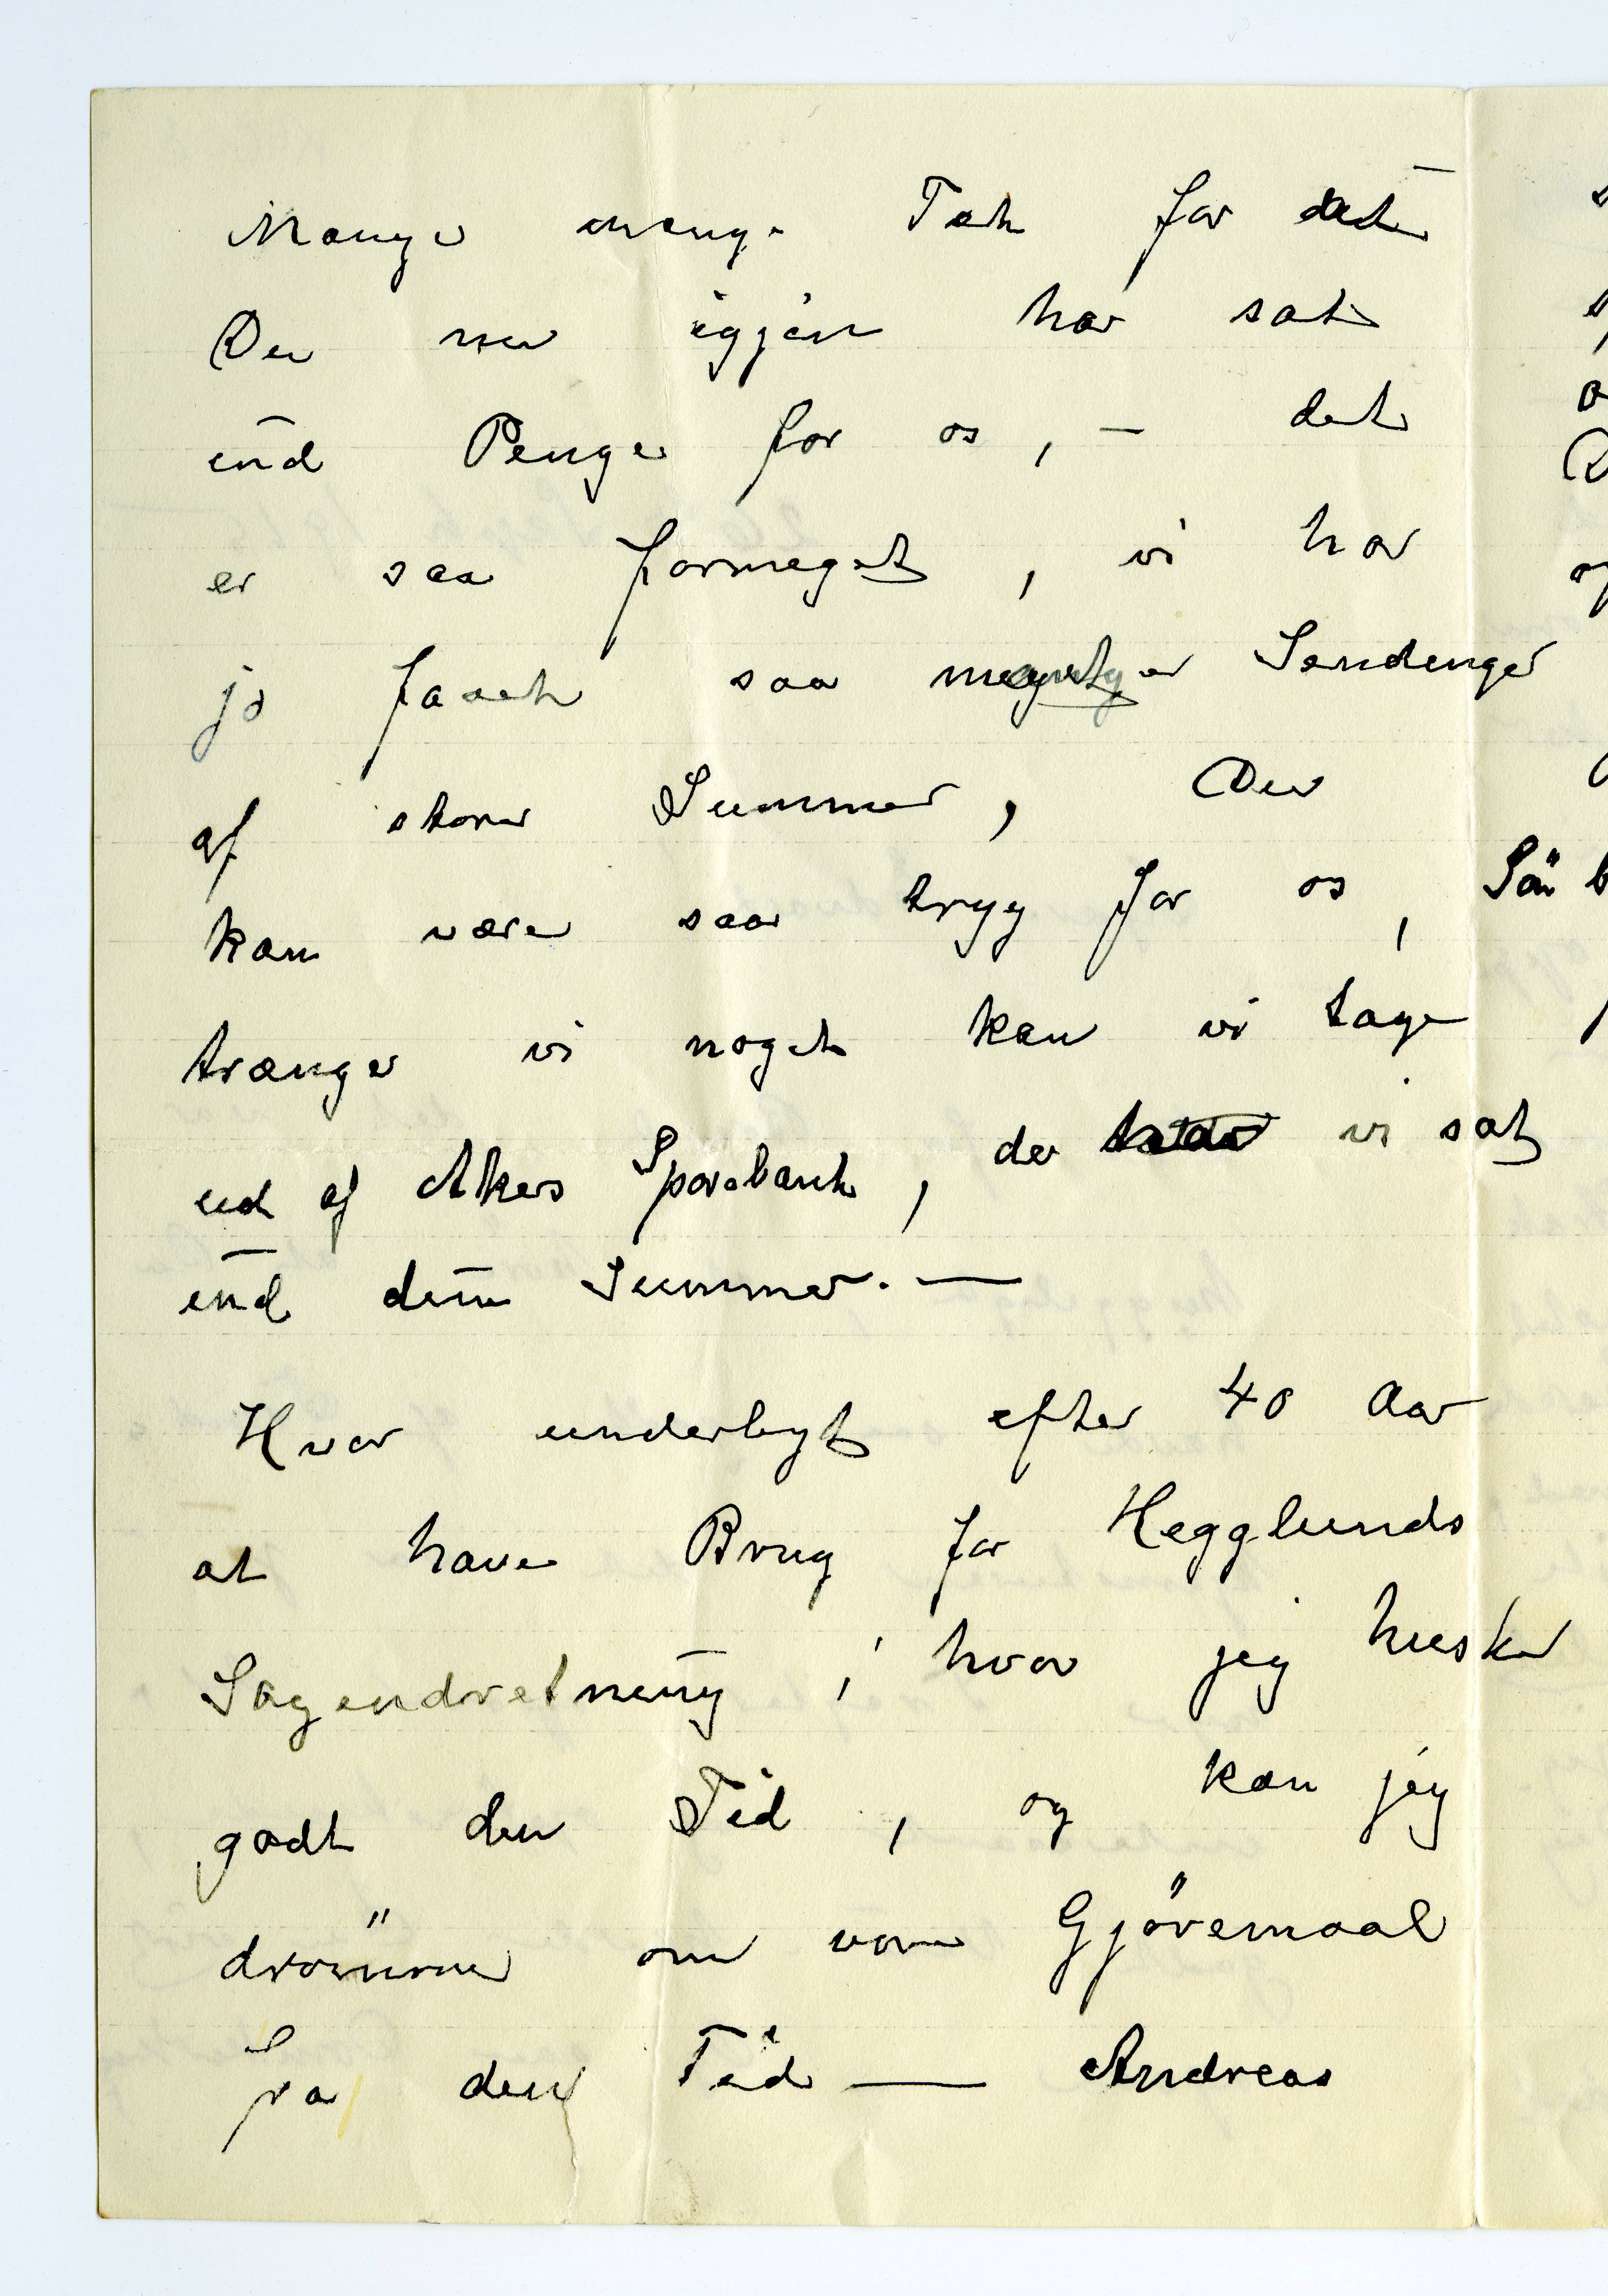 Mange mange Tak for det
Du nu igjen har sat
ind Penge for os, — det
er saa formeget, vi har
jo faaet saa mægtige Sendinger
af store Summer, Du
kan være saa tryg for os,
trænger vi noget kan vi tage
ud af Akers Sparebank, der vi sat
ind dine Summer. —
Hvor underligt efter 40 Aar
at have Brug for Hegglunds
Sagindretning, hvor jeg husker
godt den Tid, og kan jeg
drömme om vore Gjöremaal
fra den Tid — Andreas